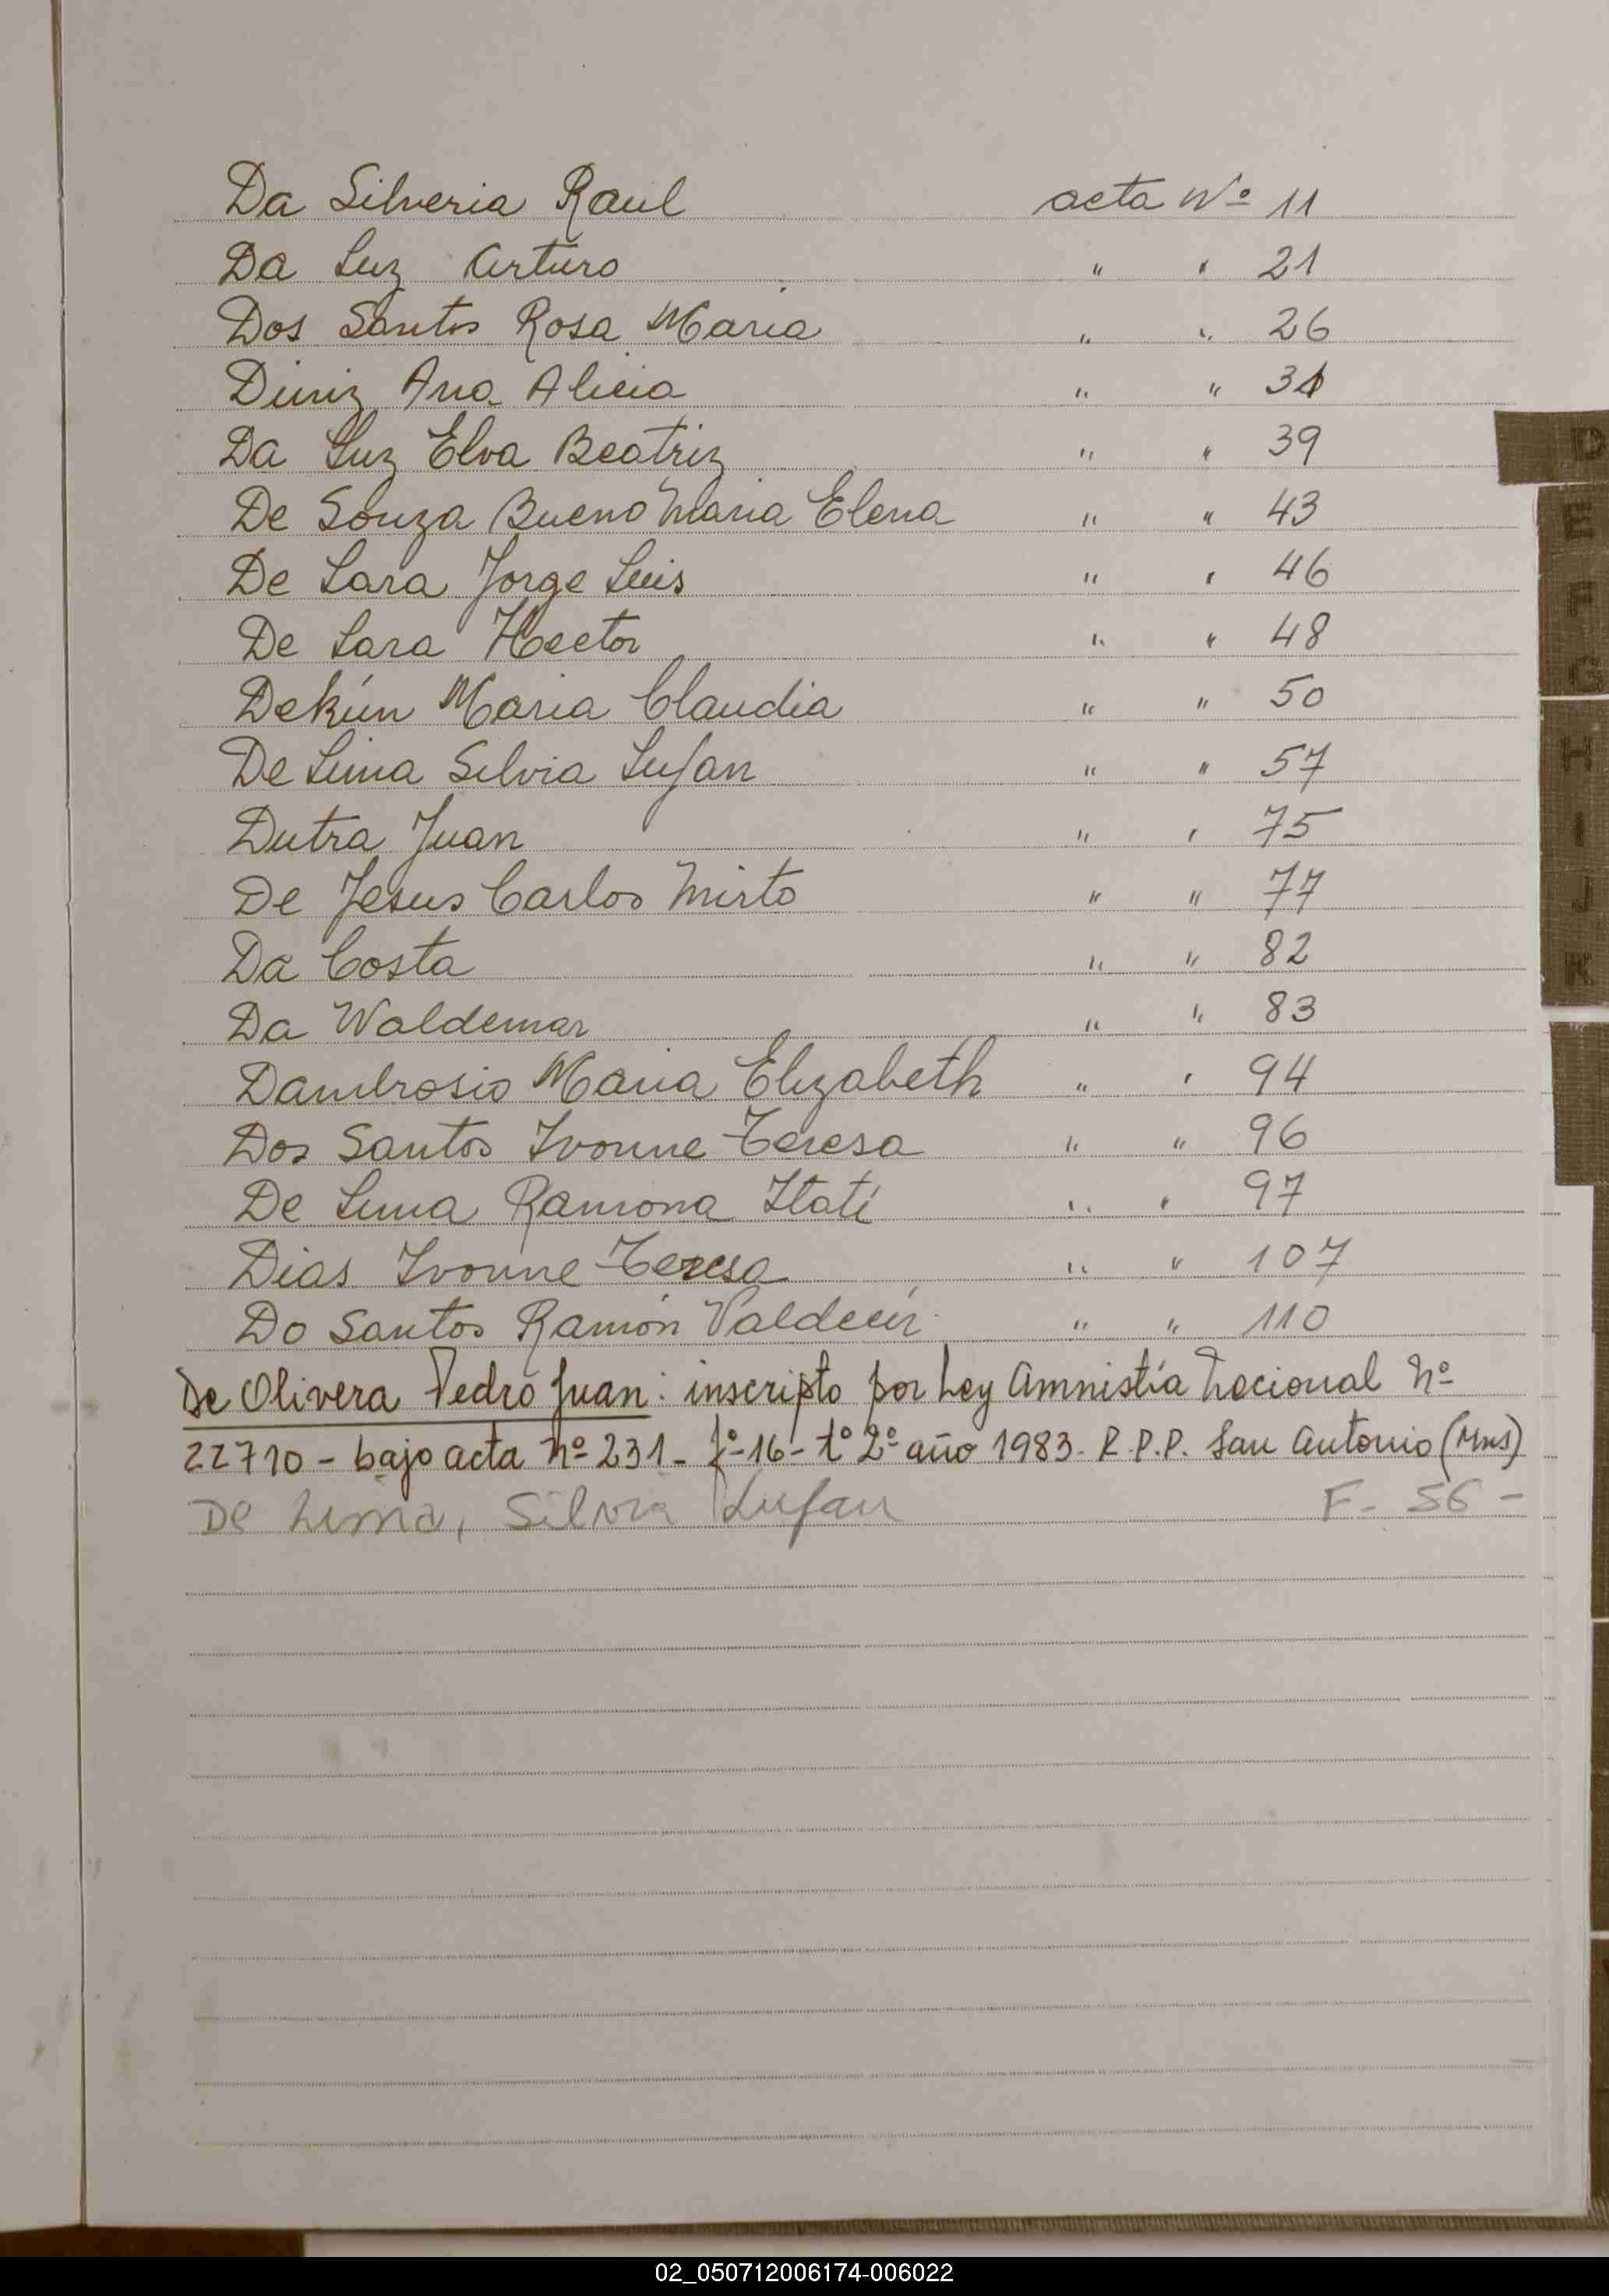 Da Silveria Raul acta Nº 11
Da Luz Arturo " " 21
Dos Santos Rosa Maria " " 26
Diniz Ana Alicia " " 31
Da Luz Elva Beatriz " " 39
De Souza Bueno Maria Elena " " 43
De Lara Jorge Luis " " 46
De Lara Hector " " 48
Dekún Maria Claudia " " 50
De Lima Silvia Lujan " " 57
Dutra Juan " " 75
De Jesus Carlos Mirto " " 77
Da Costa " " 82
Da Waldemar " " 83
Dambrosio Maria Elizabeth " " 94
Dos Santos Ivonne Teresa " " 96
De Lima Ramona Itatí " " 97
Dias Ivonne Teresa " " 107
Do Santos Ramón Valdecir " " 110
De Olivera Pedro Juan: inscripto por Ley Amnistía Nacional Nº
22710 - bajo acta Nº 231 - fº-16- tº 2º año 1983- R.P.P. San Antonio (Mns)
De Lima, Silvia Lujan F- 56 -
D
E
F
G
H
I
J
K
02_050712006174-006022